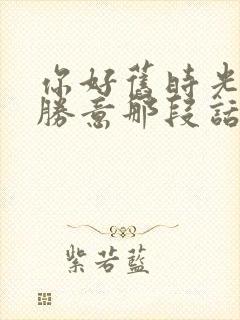 你好舊時光
勝意那段話
紫若藍